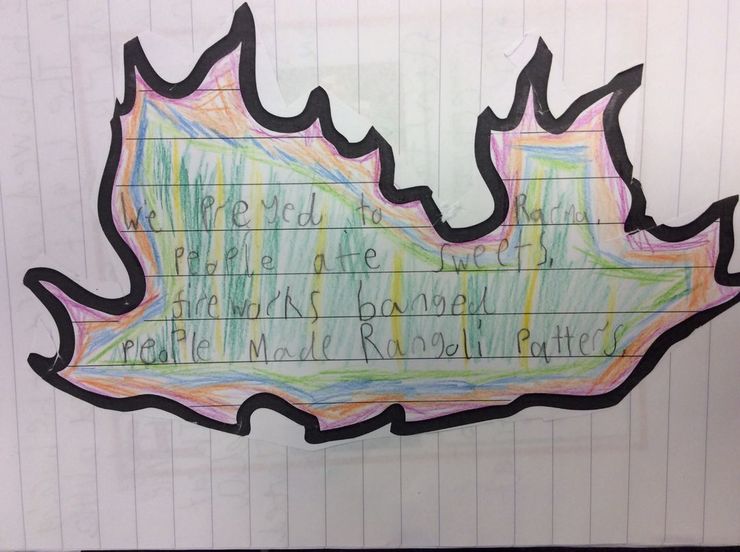 We preyed to Rama.
People ate sweets.
fireworks banged
people Made Rangoli Patters.